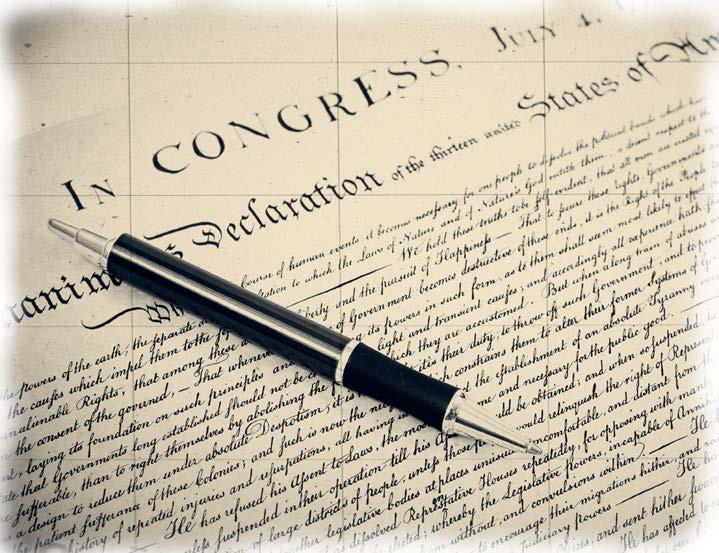 IN CONGRESS, JULY 4,
Declaration of the thirteen united States of
Course of human events it becomes necessary for one people to dissolve the political bands which have
the powers of the earth, the separate station to which the Laws of Nature and of Nature's God entitle them, a decent respect to the
the causes which impel them to the We hold these truths to be self-evident, that all men are created
unalienable Rights, that among these and the pursuit of Happiness — That to secure these rights, Governments
the consent of the governed, — That whenever Government becomes destructive of these ends, it is the Right of the People to
laying its foundation on such principles and its powers in such form, as to them shall seem most likely to effect
that Governments long established should not be light and transient causes; and accordingly all experience hath
sufferable, than to right themselves by abolishing the which they are accustomed. But when a long train of abuses
a design to reduce them under absolute Despotism, it is their duty, to throw off such Government, and to
the patient sufferance of these Colonies; and such is now the which constrains them to alter their former Systems of
history of repeated injuries and usurpations, all having the establishment of an absolute Tyranny over
He has refused his Assent to Laws, the and necessary for the public good.
unless suspended in their operation till his be obtained; and when so suspended, he
of large districts of people, unless those would relinquish the right of
together legislative bodies at places unusual, uncomfortable, and distant from
dissolved Representative Houses repeatedly, for opposing with manly
elected; whereby the Legislative Powers, incapable of
from without, and convulsions within. — He
to encourage their migrations hither, and
Judiciary powers. — He
and sent hither
He has affected to